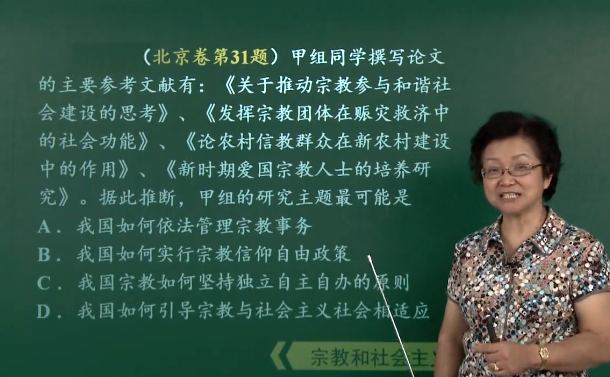 （北京卷第31题）甲组同学撰写论文
的主要参考文献有：《关于推动宗教参与和谐社
会建设的思考》、《发挥宗教团体在赈灾救济中
的社会功能》、《论农村信教群众在新农村建设
中的作用》、《新时期爱国宗教人士的培养研
究》。据此推断，甲组的研究主题最可能是
A．我国如何依法管理宗教事务
B．我国如何实行宗教信仰自由政策
C．我国宗教如何坚持独立自主自办的原则
D．我国如何引导宗教与社会主义社会相适应
宗教和社会主